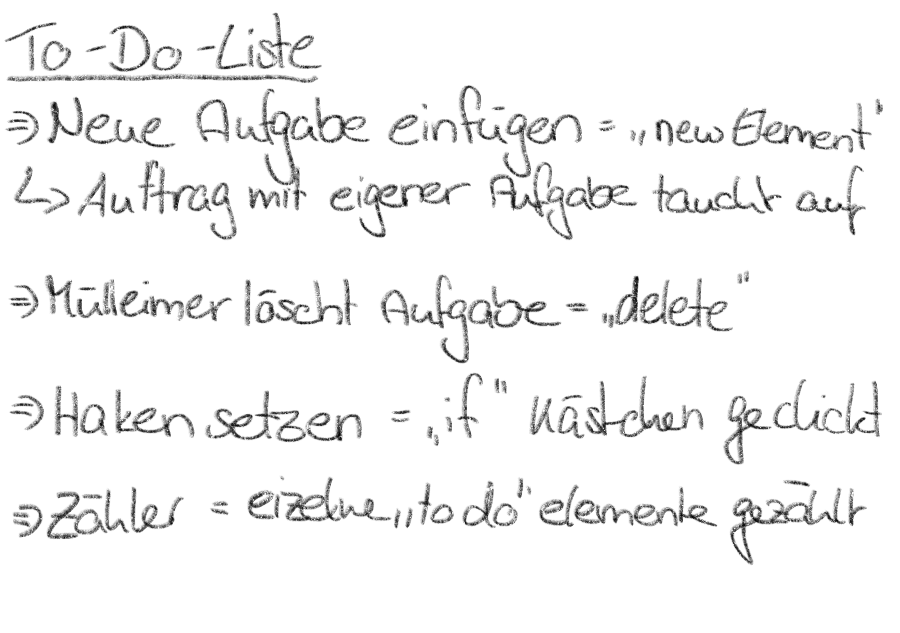 To-Do-Liste
⇒ Neue Aufgabe einfügen = „new Element"
↳ Auftrag mit eigener Aufgabe taucht auf
⇒ Mülleimer löscht Aufgabe = „delete"
⇒ Haken setzen = „if" Kästchen geclickt
⇒ Zähler = eizelne „to do" elemente gezählt